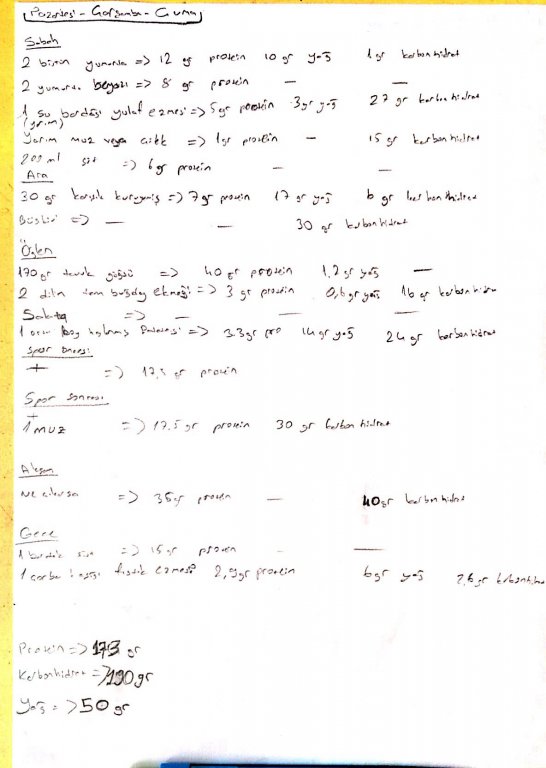 Pazartesi - Çarşamba - Cuma
Sabah
2 bütün yumurta => 12 gr protein 10 gr yağ 1 gr karbonhidrat
2 yumurta beyazı => 8 gr protein — —
1 su bardağı yulaf ezmesi => 5 gr protein 3 gr yağ 27 gr karbonhidrat
(yarım)
Yarım muz veya => 1 gr protein - 15 gr karbonhidrat
200 ml süt => 6 gr protein — —
Ara
30 gr karışık kuruyemiş => 7 gr protein 17 gr yağ 6 gr karbonhidrat
=> — — 30 gr karbonhidrat
Öğlen
170 gr tavuk göğsü => 40 gr protein 1,2 gr yağ —
2 dilim tam buğday ekmeği => 3 gr protein 0,6 gr yağ 16 gr karbonhidra
Salata => — — —
1 haşlanmış => 3.3 gr pro 14 gr yağ 24 gr karbonhidrat
Spor öncesi
+ => 17,5 gr protein
Spor sonrası
+
1 muz => 17.5 gr protein 30 gr karbonhidrat
Akşam
Ne olursa => 35 gr protein — 40 gr karbonhidrat
Gece
1 bardak süt => 15 gr protein - —
1 çorba kaşığı fıstık ezmesi 2,9 gr protein 6 gr yağ 2,6 gr karbonhidra
Protein => 173 gr
Karbonhidrat => 190 gr
Yağ => 50 gr